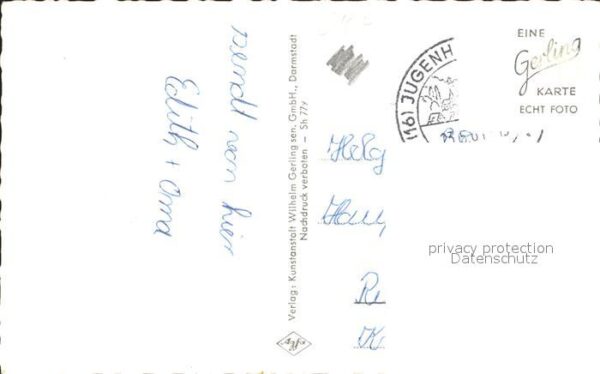 sendt von hier
Edith + Oma
Verlag: Kunstanstalt Wilhelm Gerling sen. GmbH., Darmstadt
Nachdruck verboten – Sh 77y
Agfa
(16) JUGENH
EINE
Gerling
KARTE
ECHT FOTO
Helg
Hau
R
K
privacy protection
Datenschutz